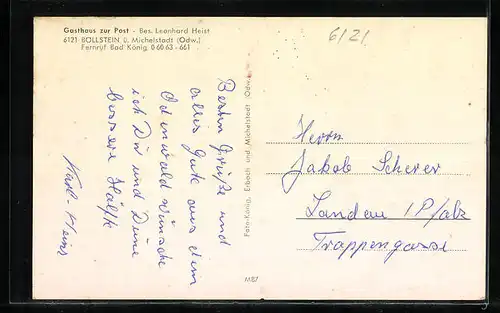 Gasthaus zur Post - Bes. Leonhard Heist
6121 BÖLLSTEIN ü. Michelstadt (Odw.)
Fernruf Bad König 0 60 63 - 661
6121
Besten Grüße und
alles Gute aus dem
Odenwald wünsche
ich Dir und Deine
bessere Hälfte
Karl-Heinz
Foto-König, Erbach und Michelstadt (Odw.)
Herrn
Jakob Scherer
Landau 1Pfalz
Trappengasse